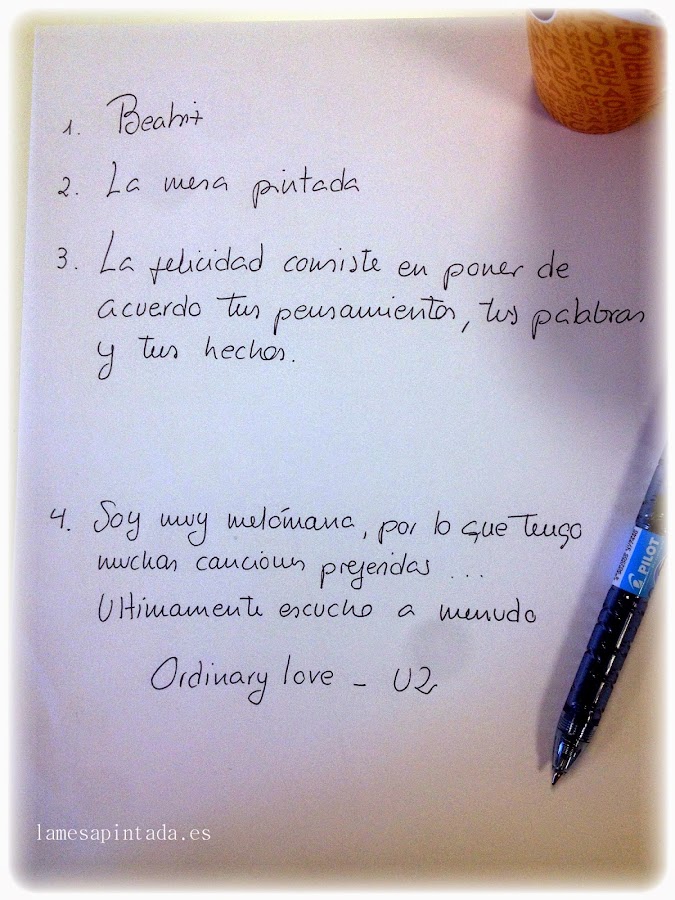 1. Beatriz
2. La mesa pintada
3. La felicidad consiste en poner de
acuerdo tus pensamientos, tus palabras
y tus hechos.
4. Soy muy melómana, por lo que tengo
muchas canciones preferidas ...
Ultimamente escucho a menudo
Ordinary love - U2
FRESCA
FRIO
PILOT
lamesapintada.es